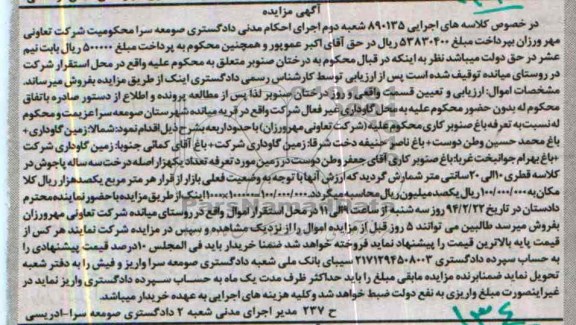 آگهی مزایده
در خصوص کلاسه های اجرایی ۸۹۰۱۳۵ شعبه دوم اجرای احکام مدنی دادگستری صومعه سرا محکومیت شرکت تعاونی
مهر ورزان بپرداخت مبلغ ۵۳۸۳۰۴۰۰ ریال در حق آقای اکبر عمویور و همچنین محکوم به پرداخت مبلغ ۵۰۰۰۰۰ ریال بابت نیم
عشر در حق دولت میباشد نظر به اینکه در قبال محکوم به درختان صنوبر متعلق به محکوم علیه واقع در محل استقرار شرکت
در روستای میانده توقیف شده است پس از ارزیابی توسط کارشناس رسمی دادگستری اینک از طریق مزایده بفروش میرساند.
مشخصات اموال: ارزیابی و تعیین قسمت واقعی و روز درختان صنوبر لذا پس از مطالعه پرونده و اطلاع از دستور صادره باتفاق
محکوم له بدون حضور محکوم علیه به محل گاوداری غیر فعال شرکت واقع در قریه میانده شهرستان صومعه سرا عزیمت و محکوم
له نسبت به تعرفه باغ صنوبر کاری محکوم علیه (شرکت تعاونی مهرورزان) با حدود اربعه بشرح ذیل اقدام نمود: شمالا: زمین گاوداری +
باغ محمد حسین وطن دوست + باغ ناصر حنیفه دخت شرقا: زمین گاوداری شرکت + باغ آقای کمائی جنوبا: زمین گاوداری شرکت
+باغ بهرام جوانبخت غربا: باغ صنوبر کاری آقای جعفر وطن دوست در زمین مورد تعرفه تعداد یکهزار اصله درخت سه ساله پاجوش در
کلاسه قطری ۱۰الی ۲۰ سانتی متر شمارش گردید که ارزش آنها با توجه به وضعیت فعلی بازار از قرار هر متر مربع یکصدهزار ریال کلا
مکان به ۱۰۰/۰۰۰/۰۰۰ ریال یکصد میلیون ریال محاسبه میگردد. اینک از طریق مزایده با حضور نماینده محترم
دادستان در تاریخ ۹۴/۲/۲۲ روز سه شنبه از ساعت ۹الی ۱۱ در محل استقرار اموال واقع در روستای میانده شرکت تعاونی مهرورزان
بفروش میرسد طالبین می توانند ۵ روز قبل از مزایده اموال را از نزدیک مشاهده و سپس در مزایده شرکت نمایند هر کس از
قیمت پایه بالاترین قیمت را پیشنهاد نماید فروخته خواهد شد ضمنا خریدار باید فی المجلس ۱۰درصد قیمت پیشنهادی را
به حساب سپرده دادگستری ۲۱۷۱۲۹۴۵۰۸۰۰۳ سیبای بانک ملی شعبه دادگستری صومعه سرا واریز و فیش را به دفتر شعبه
تحویل نماید ضمنا برنده مزایده مابقی مبلغ را باید حداکثر ظرف مدت یک ماه به حساب سپرده دادگستری واریز نماید در
غیر اینصورت مبلغ واریزی به نفع دولت ضبط خواهد شد و کلیه هزینه های اجرایی به عهده خریدار میباشد.
ح ۲۳۷ مدیر اجرای مدنی شعبه ۲ دادگستری صومعه سرا-ادریسی